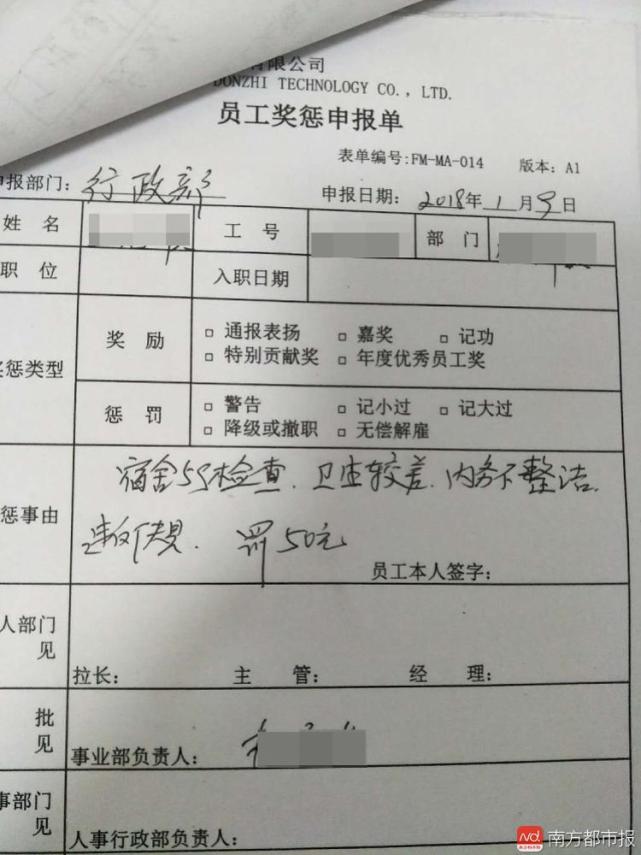 有限公司
DONZHI TECHNOLOGY CO., LTD.
员工奖惩申报单
表单编号:FM-MA-014 版本: A1
申报部门: 行政部 申报日期: 2018年1月9日
姓 名 工 号 部 门
职 位 入职日期
奖惩类型
奖 励
□ 通报表扬 □ 嘉奖 □ 记功
□ 特别贡献奖 □ 年度优秀员工奖
惩 罚
□ 警告 □ 记小过 □ 记大过
□ 降级或撤职 □ 无偿解雇
惩事由
宿舍5S检查、卫生较差、内务不整洁、
罚50元
员工本人签字:
人部门
见
拉长: 主 管: 经 理:
批
见
事业部负责人:
事部门
见
人事行政部负责人:
南方都市报